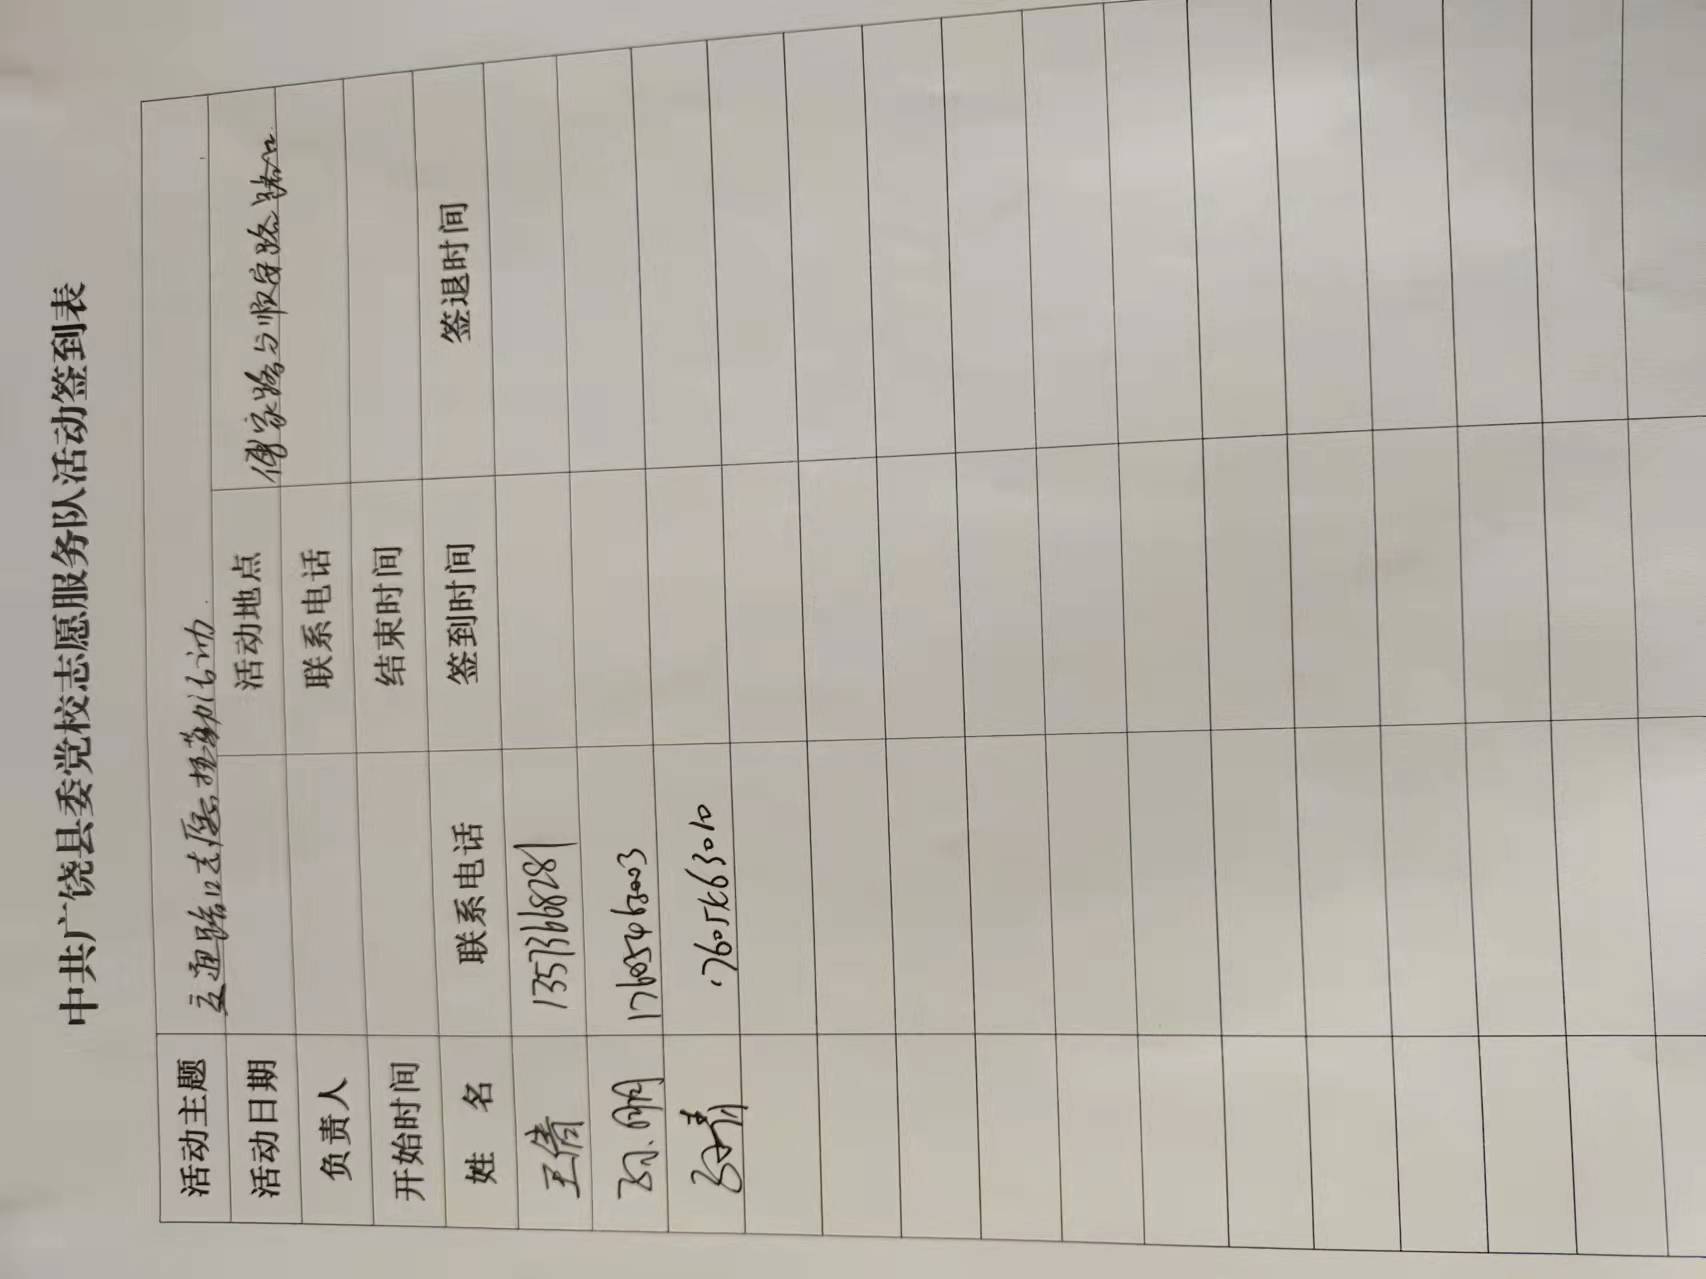 中共广饶县委党校志愿服务队活动签到表
活动主题 交通路口志愿援勤活动
活动日期 活动地点 傅家路与顺安路路口
负责人 联系电话
开始时间 结束时间
姓 名 联系电话 签到时间 签退时间
王倩 13573668281
孙明 17605463003
17605463010